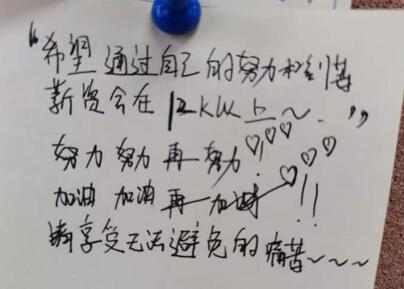 “希望通过自己的努力 得到
薪资会在 12KW 上~. ”
努力 努力 再一努力!
加油 加油 再一加油!!
请享受无法避免的痛苦~~~